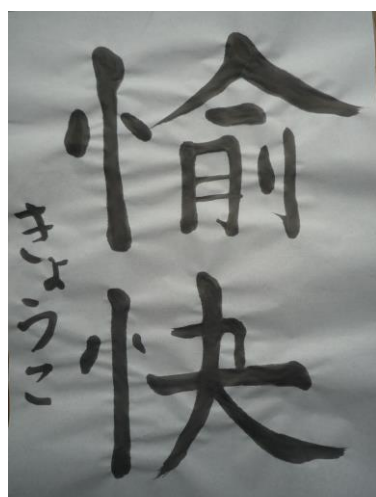 愉快
きょうこ